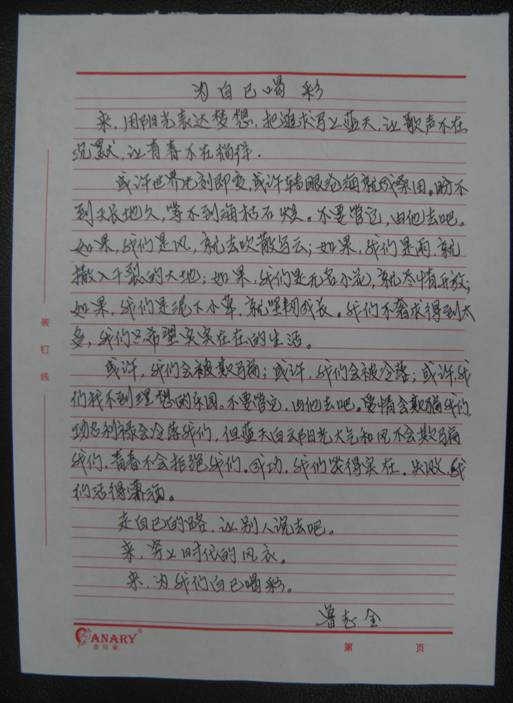 为自己喝彩
来，用阳光表达梦想，把追求写上蓝天，让歌声不在
沉默，让青春不在徜徉．
或许世界此刻即变，或许转眼沧海就成桑田。盼不
到天长地久，等不到海枯石烂。不要管它，由他去吧。
如果，我们是风，就去吹散乌云；如果，我们是雨，就
撒入干裂的大地；如果，我们是无名小花，就尽情开放；
如果，我们是泥下小草，就坚韧成长。我们不奢求得到太
多，我们只希望实实在在的生活。
或许，我们会被欺骗；或许，我们会被冷落；或许，我
们找不到理想的乐园。不要管它，由他去吧。爱情会欺骗我们，
功名利禄会冷落我们，但蓝天白云阳光大气和风不会欺骗
我们，青春不会拒绝我们。成功，我们笑得实在，失败，我
们活得潇洒。
走自己的路，让别人说去吧。
来，穿上时代的风衣。
来，为我们自己喝彩。
鲁志全
装
订
线
CANARY®
第 页